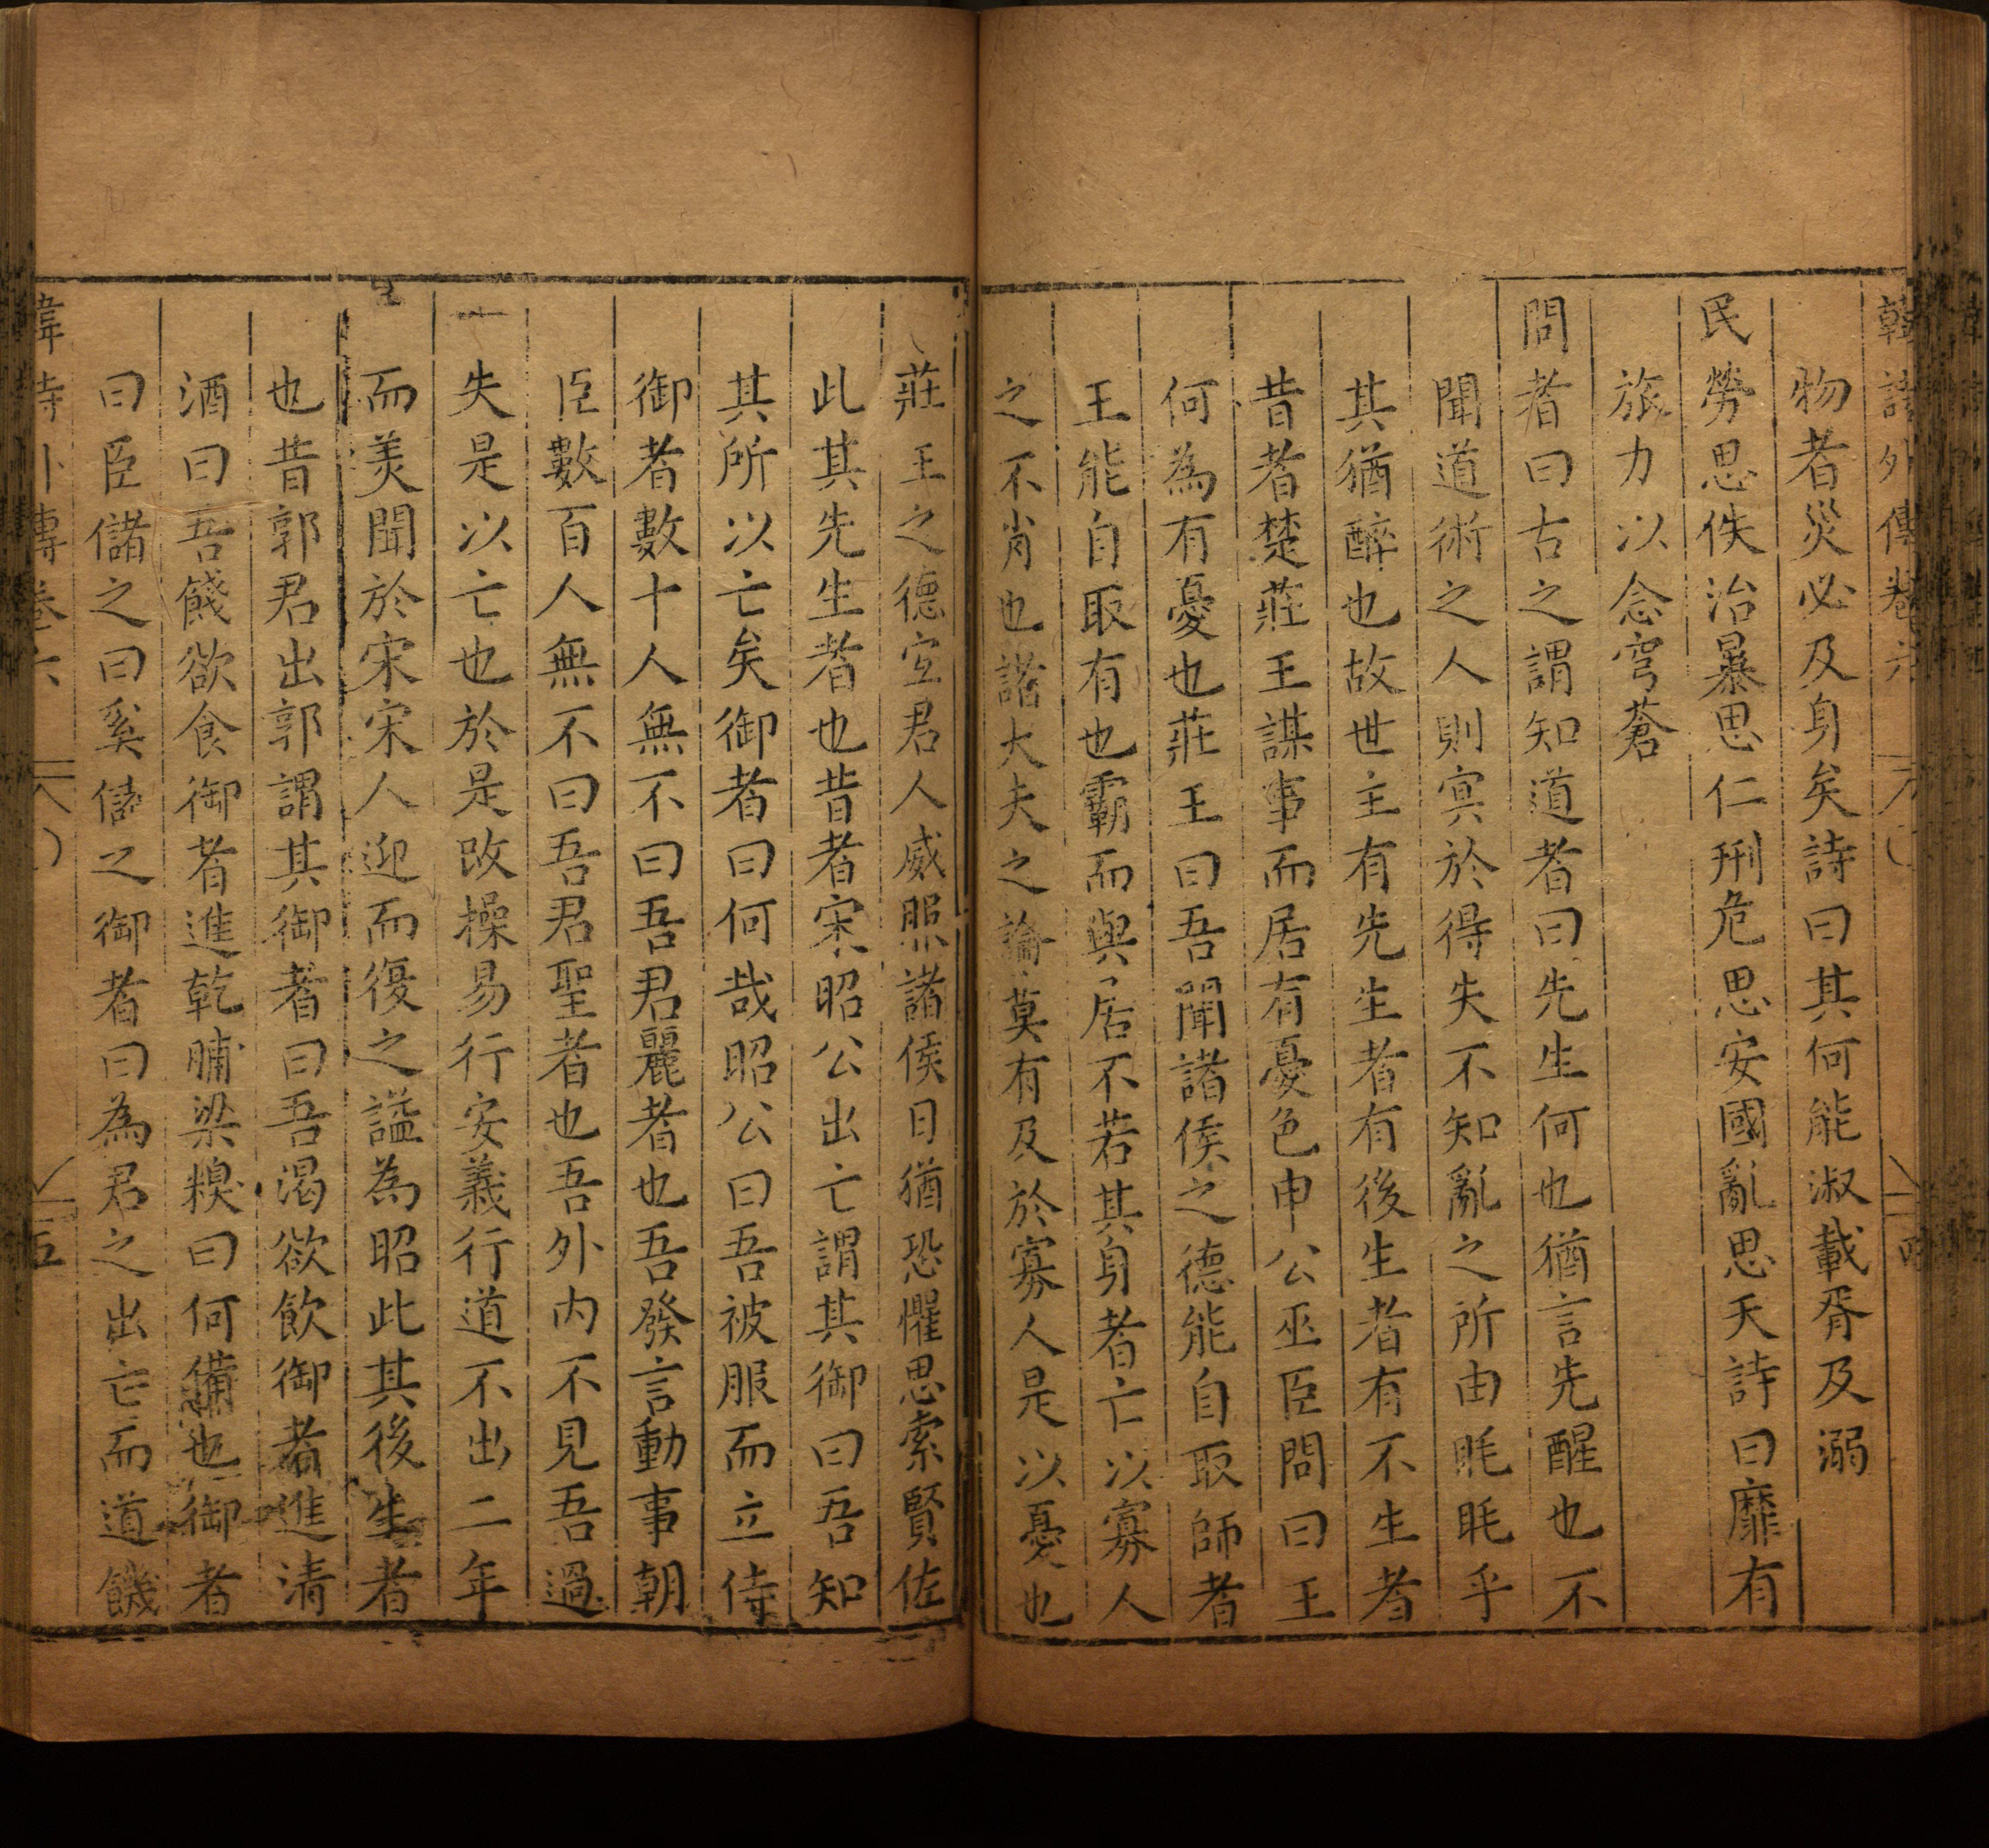 韓詩外傳卷六
物者災必及身矣詩曰其何能淑載胥及溺
民勞思佚治暴思仁刑危思安國亂思天詩曰靡有
旅力以念穹蒼
問者曰古之謂知道者曰先生何也猶言先醒也不
聞道術之人則冥於得失不知亂之所由眊眊乎
其猶醉也故世主有先生者有後生者有不生者
昔者楚莊王謀事而居有憂色申公巫臣問曰王
何為有憂也莊王曰吾聞諸侯之德能自取師者
王能自取有也霸而與居不若其身者亡以寡人
之不肖也諸大夫之論莫有及於寡人是以憂也
莊王之德宜君人威照諸侯日猶恐懼思索賢佐
此其先生者也昔者宋昭公出亡謂其御曰吾知
其所以亡矣御者曰何哉昭公曰吾被服而立侍
御者數十人無不曰吾君麗者也吾發言動事朝
臣數百人無不曰吾君聖者也吾外内不見吾過
失是以亡也於是改操易行安義行道不出二年
而美聞於宋宋人迎而復之謚為昭此其後生者
也昔郭君出郭謂其御者曰吾渴欲飲御者進清
酒曰吾餞欲食御者進乾脯梁糗曰何備也御者
曰臣儲之曰奚儲之御者曰為君之出亡而道饑
韋詩卜專卷六
五